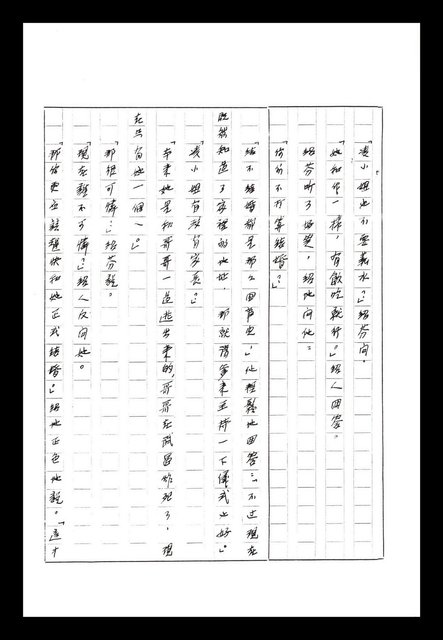 「凌小姐也不要薪水？」紹芬問。
「她和你一樣，有飯吃就行。」紹人回答。
紹芬聽了好笑，紹地問他：
「你們不打算結婚？」
「結不結婚都是那么回事兒！」他輕鬆地回答：「不過現在
既然知道了家裡的地址，那就請爹來主持一下儀式也好。」
「凌小姐有沒有家長？」
「本來她是和哥哥一道逃出來的，哥哥在武昌炸死了，現
在只有她一個。」
「那很可憐…」紹芬說。
「現在難不可憐？」紹人反問她。
「那你更應該趕快和她正式結婚。」紹地正色地說。「這才